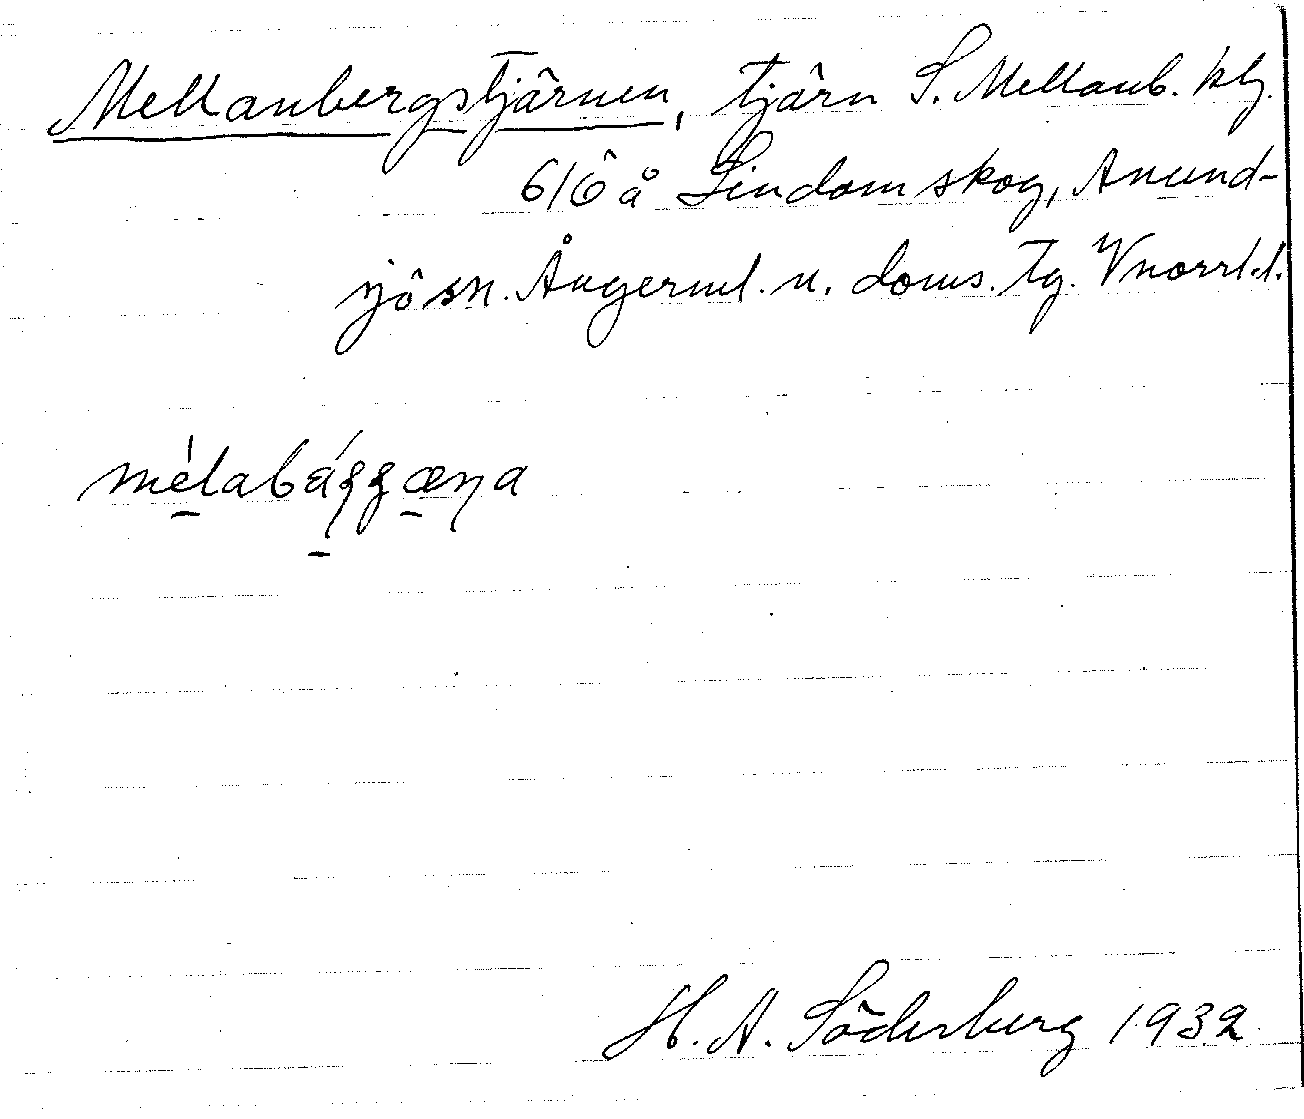 Mellanbergstjärnen, tjärn S. Mellanb. blz.
616 å Lindom skog, Anund-
sjö sn. Ångerml. n. doms. tg. Vnorrl. l.
mélabáʒʒæŋa
H. A. Söderberg 1932